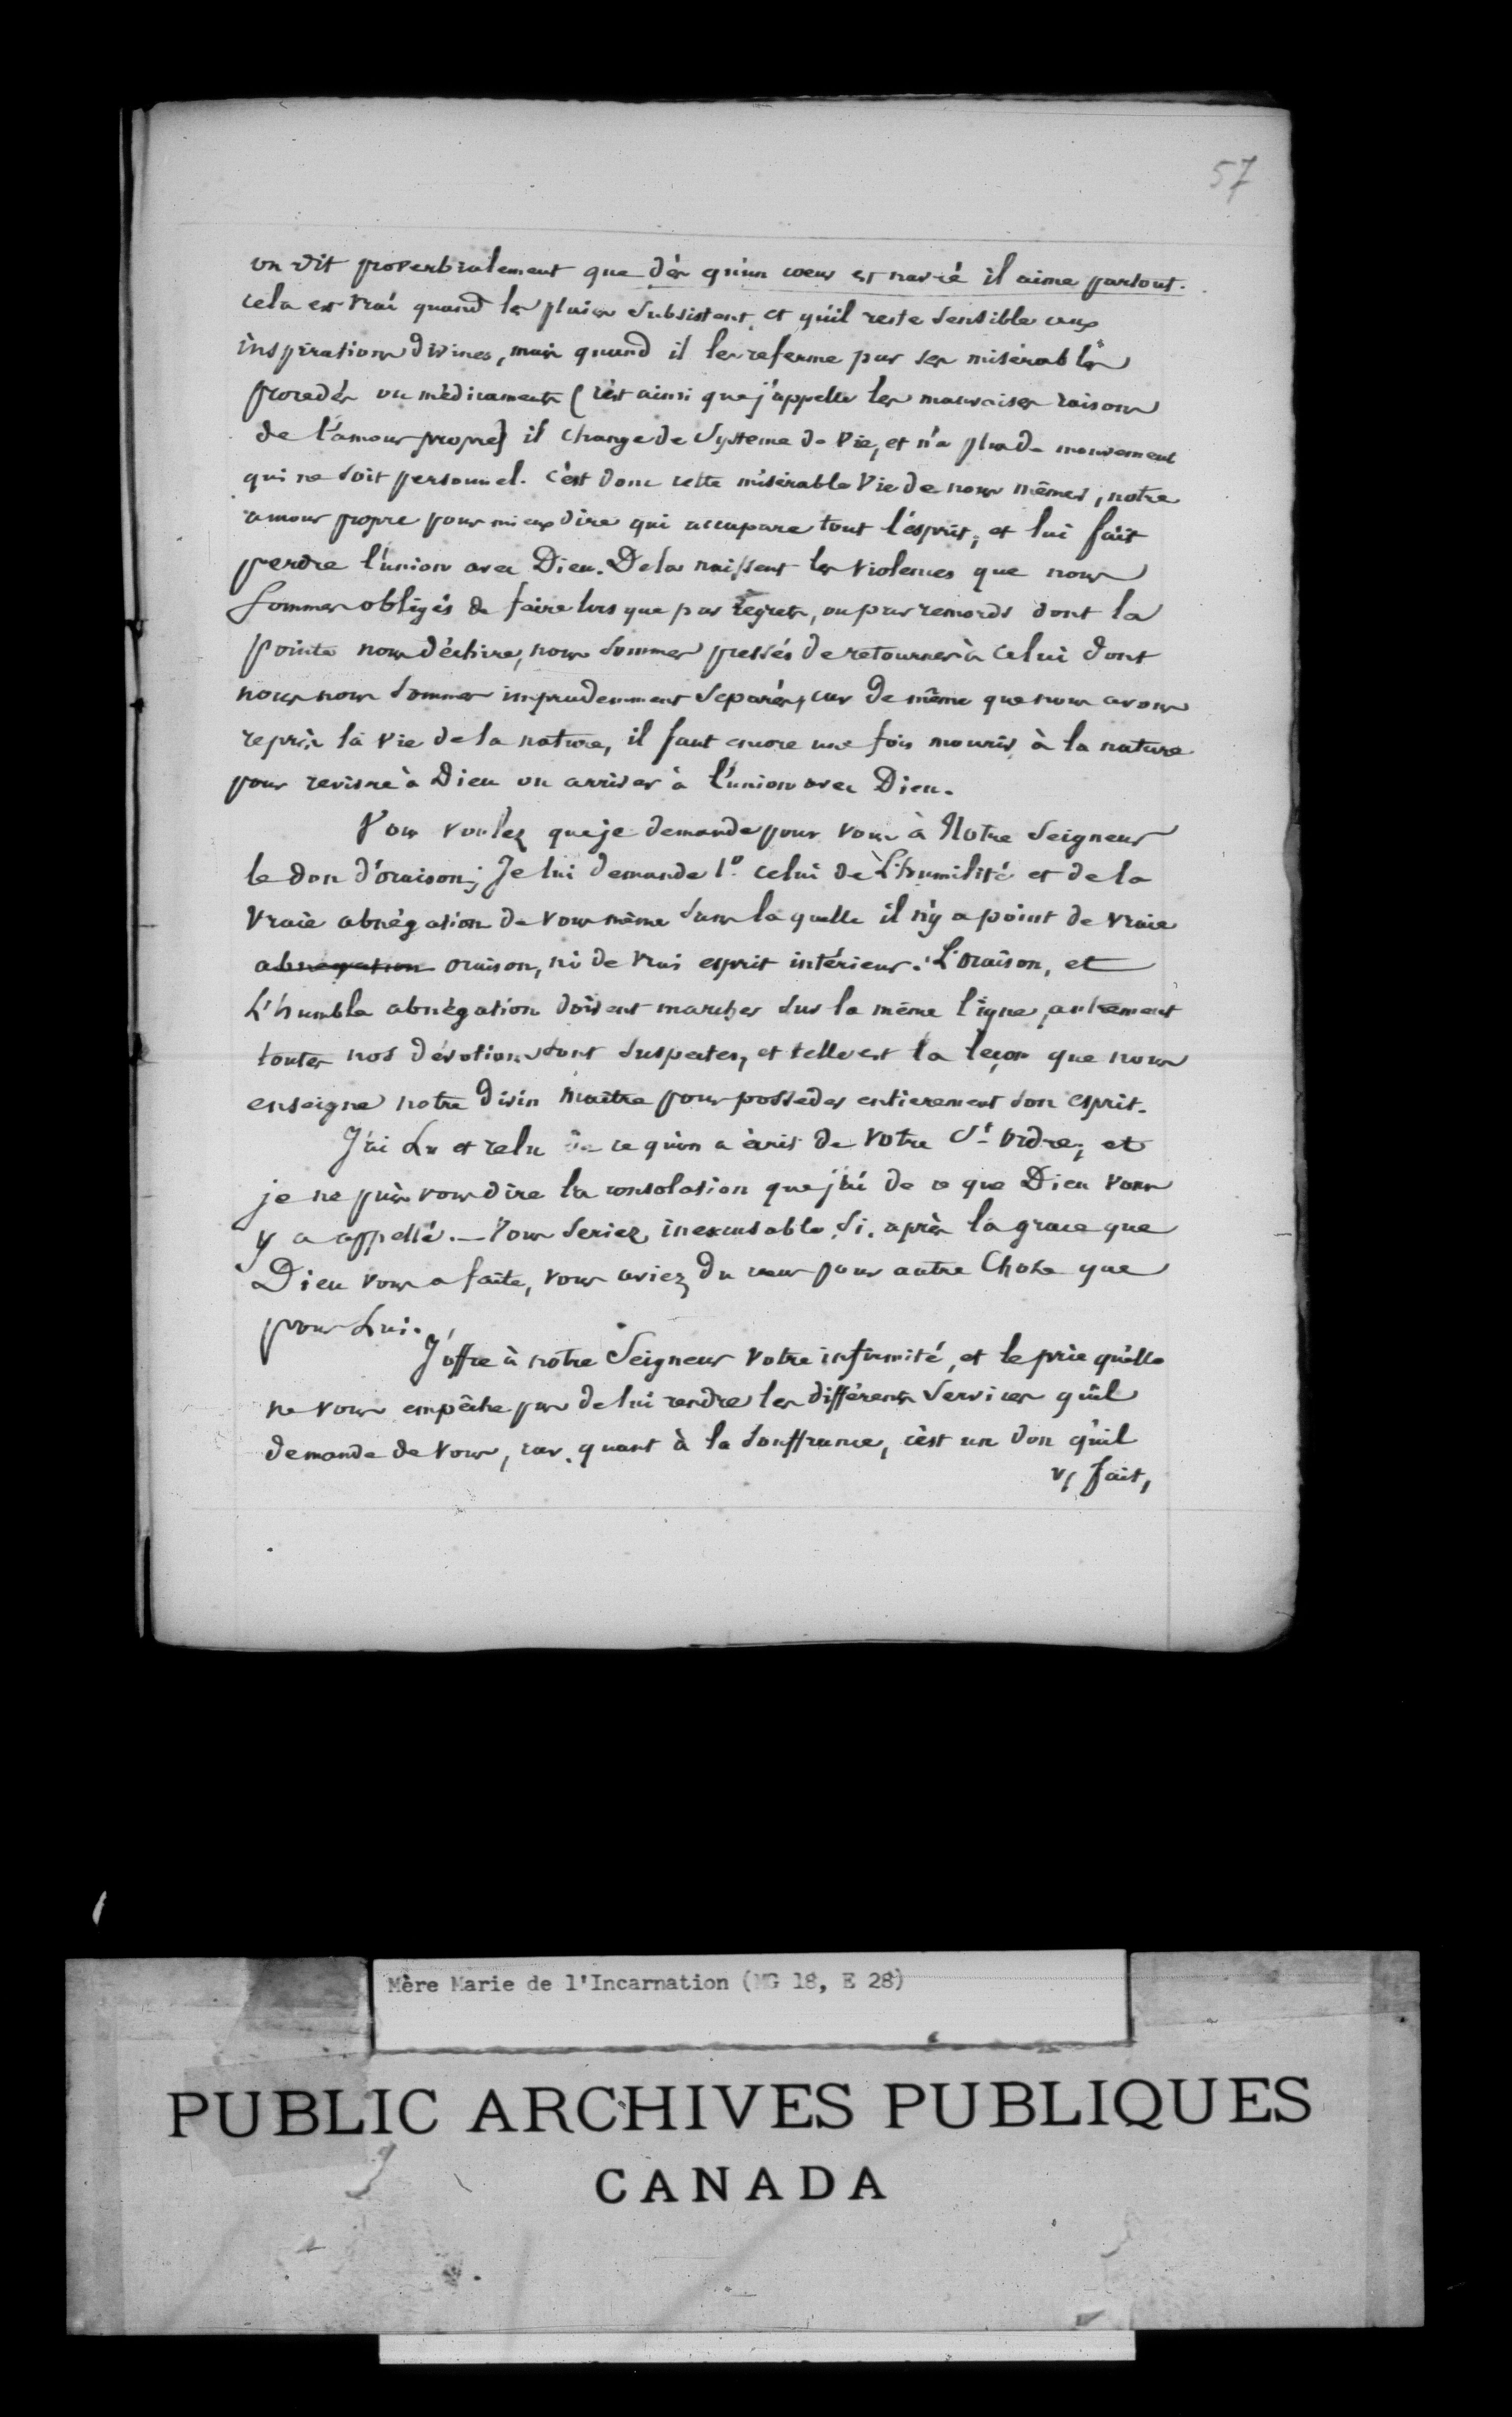 57
on dit proverbialement que dès qu'un coeur est navré il aime partout.
cela est vrai quand les plaies subsistent, et qu'il reste sensible aux
inspirations divines, mais quand il les referme par ses misérables
procédés ou médicaments (c'est ainsi que j'appelle les mauvaises raisons
de l'amour propre) il change de systeme de vie, et n'a plus de mouvement
qui ne soit personnel. c'est donc cette misérable vie de nous mêmes, notre
amour propre pour mieux dire qui accupare tout l'esprit, et lui fait
perdre l'union avec Dieu. De la naissent les violences que nous
sommes obligés de faire lors que par regrets, ou par remords dont la
pointe nous déchire, nous sommes pressés de retourner à celui dont
nous nous sommes imprudemment separés, car de même que nous avons
repris la vie de la nature, il faut encore une fois mourir à la nature
pour revivre à Dieu ou arriver à l'union avec Dieu.
Vous voulez que je demande pour vous à Notre Seigneur
le don d'oraison; Je lui demande 1.º celui de L'humilité et de la
vraie abnégation de vous même sans la quelle il n'y a point de vraie
abnegation oraison, ni de vrai esprit intérieur. L'oraison, et
L'humble abnégation doivent marcher sur la même ligne, autrement
toutes nos dévotions sont suspectes, et telle est la leçon que nous
enseigne notre divin maître pour posseder entierement son esprit.
J'ai Lu et relu ce qu'on a écrit de votre St. ordre; et
je ne puis vous dire la consolation que j'ai de ce que Dieu vous
y a appellé. — Vous seriez inexcusable si, après la grace que
Dieu vous a faite, vous aviez du coeur pour autre chose que
pour Lui.
J'offre à notre Seigneur votre infirmité, et le prie qu'elle
ne vous empêche pas de lui rendre les différents services qu'il
demande de vous, car, quant à la souffrance, c'est un don qu'il
v/ fait,
Mère Marie de l'Incarnation (MG 18, E 28)
PUBLIC ARCHIVES PUBLIQUES
CANADA